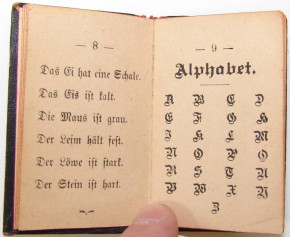 — 8 —
Das Ei hat eine Schale.
Das Eis ist kalt.
Die Maus ist grau.
Der Leim hält fest.
Der Löwe ist stark.
Der Stein ist hart.
— 9 —
Alphabet.
A B C D
E F G H
I K L M
N O P Q
R S T U
V W X Y
Z